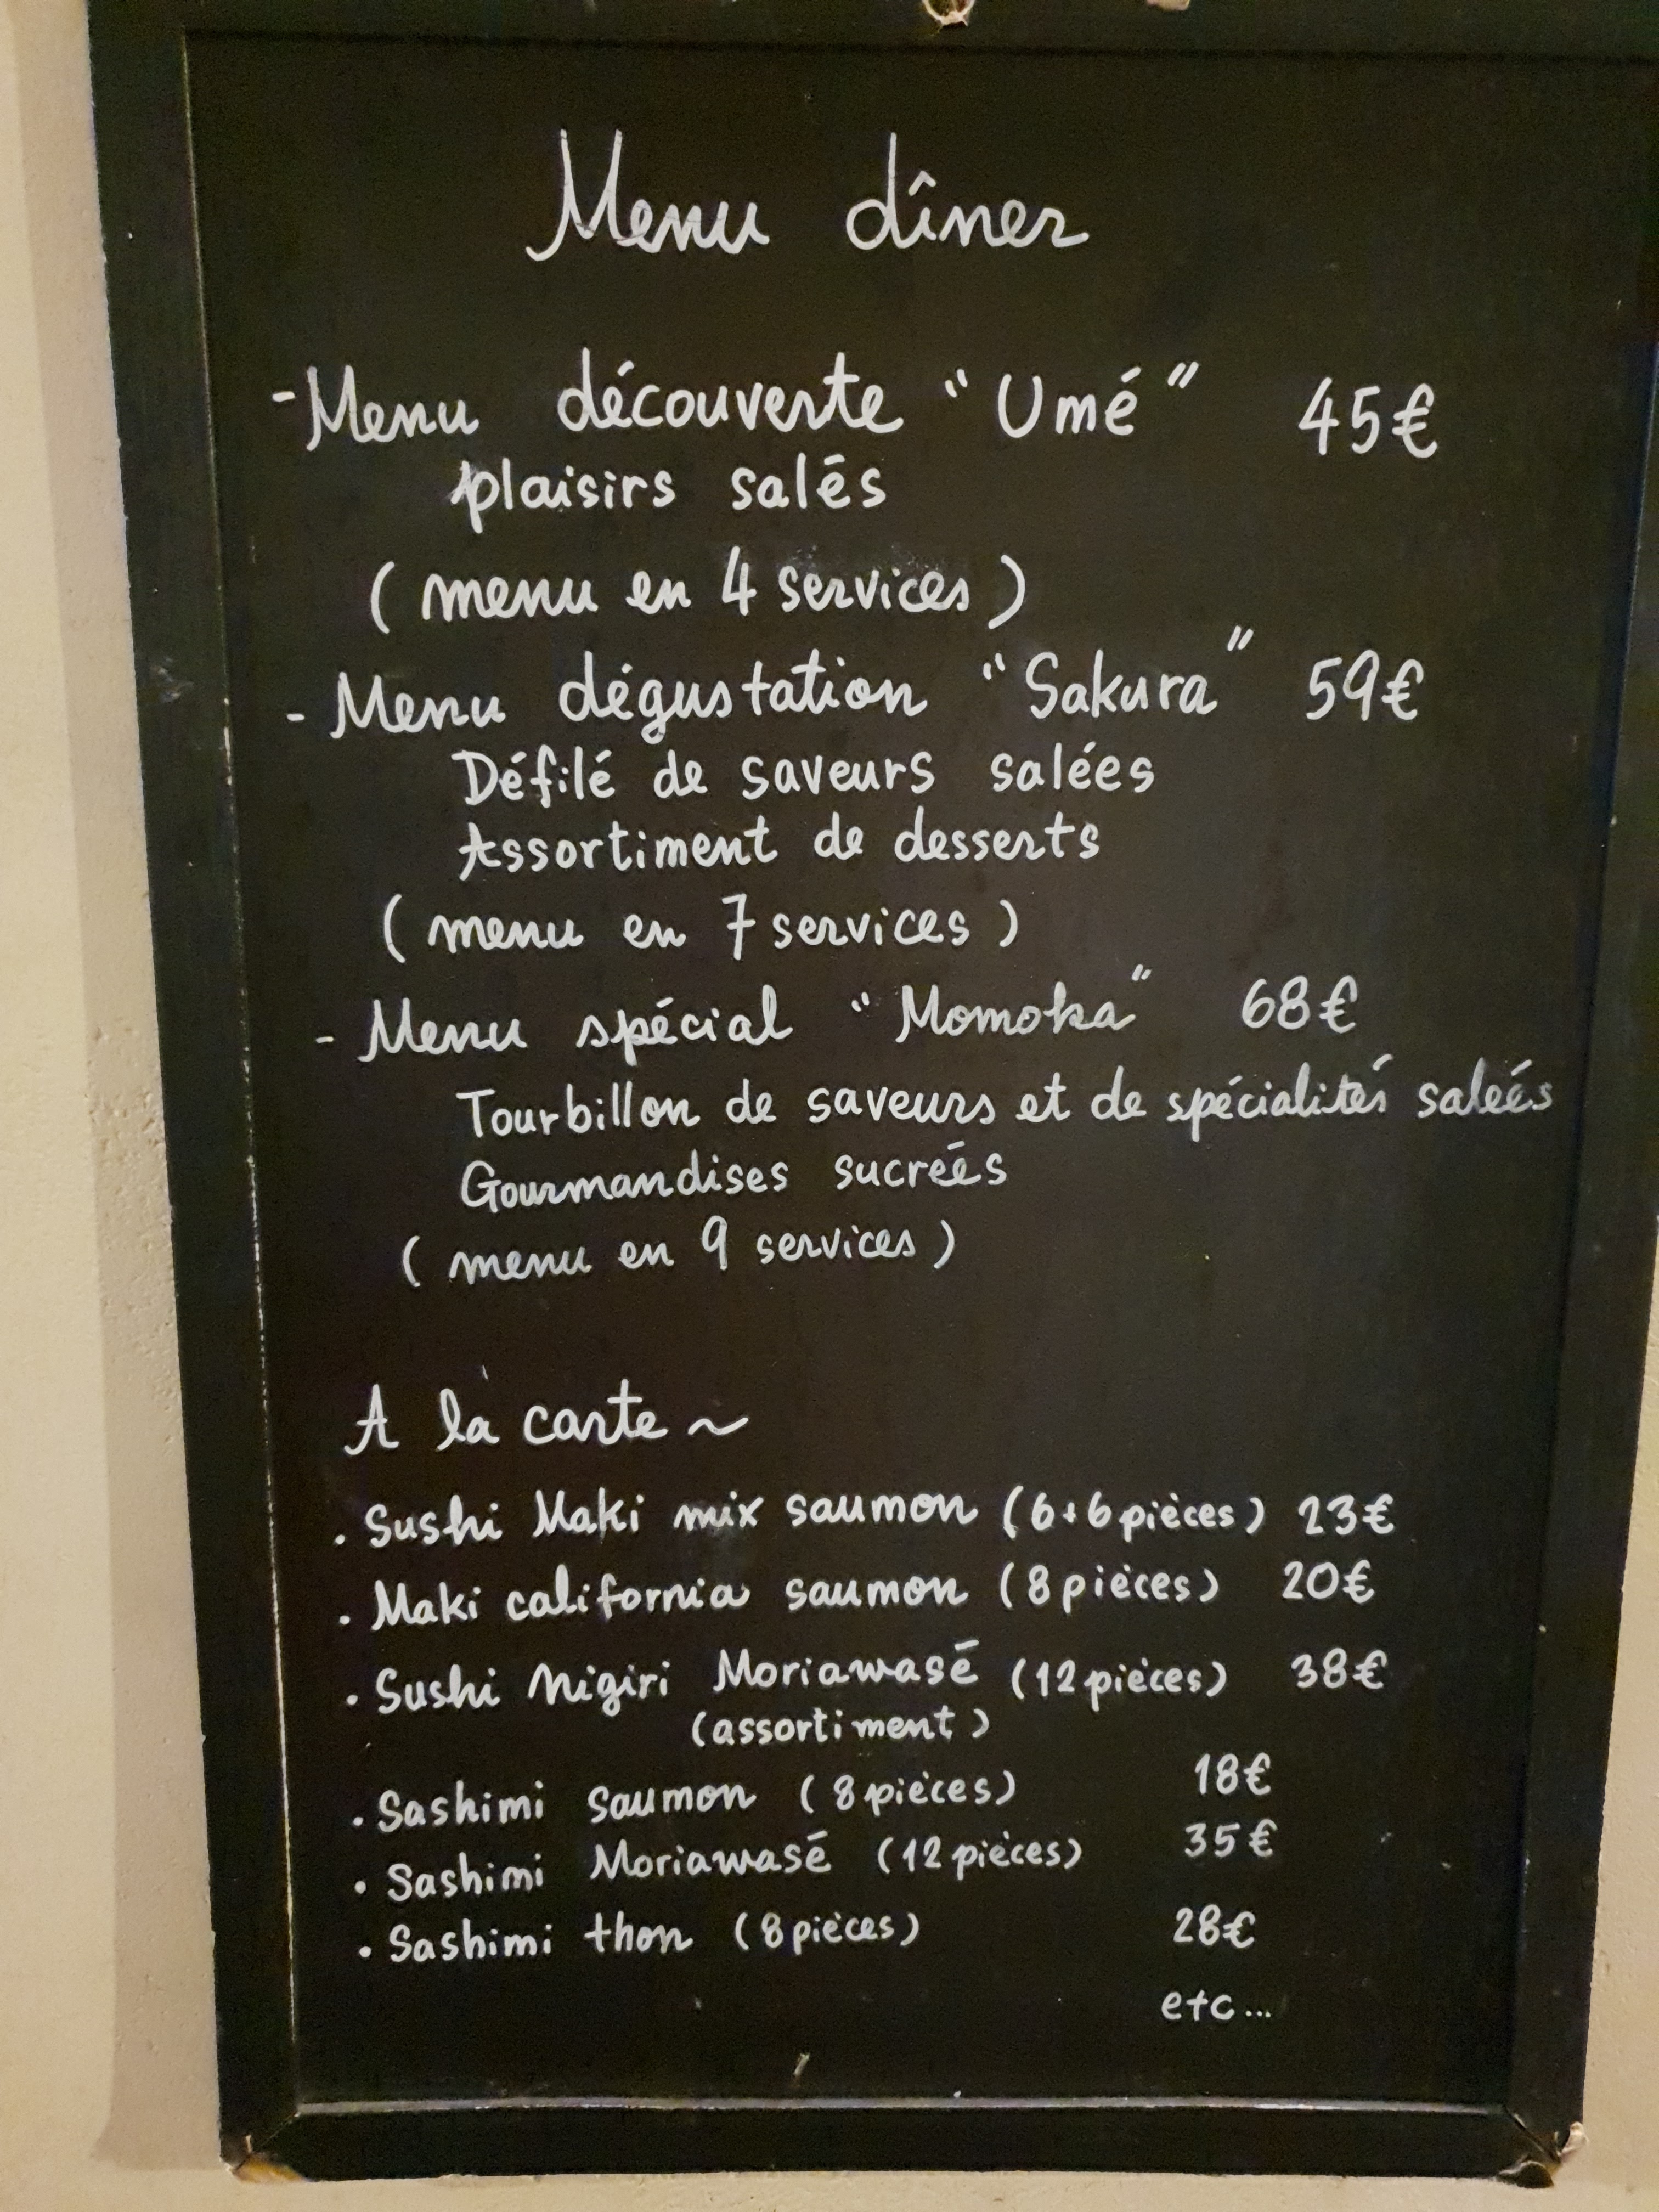 Menu dîner
- Menu découverte "Umé" 45€
plaisirs salés
( menu en 4 services )
- Menu dégustation "Sakura" 59€
Défilé de saveurs salées
Assortiment de desserts
( menu en 7 services )
- Menu spécial "Momoka" 68€
Tourbillon de saveurs et de spécialités saleés
Gourmandises sucreés
( menu en 9 services )
A la carte ~
. Sushi Maki mix saumon (6+6 pièces) 23€
. Maki california saumon (8 pièces) 20€
. Sushi Nigiri Moriawasé (12 pièces) 38€
(assortiment)
. Sashimi saumon (8 pièces) 18€
. Sashimi Moriawasé (12 pièces) 35€
. Sashimi thon (8 pièces) 28€
etc...